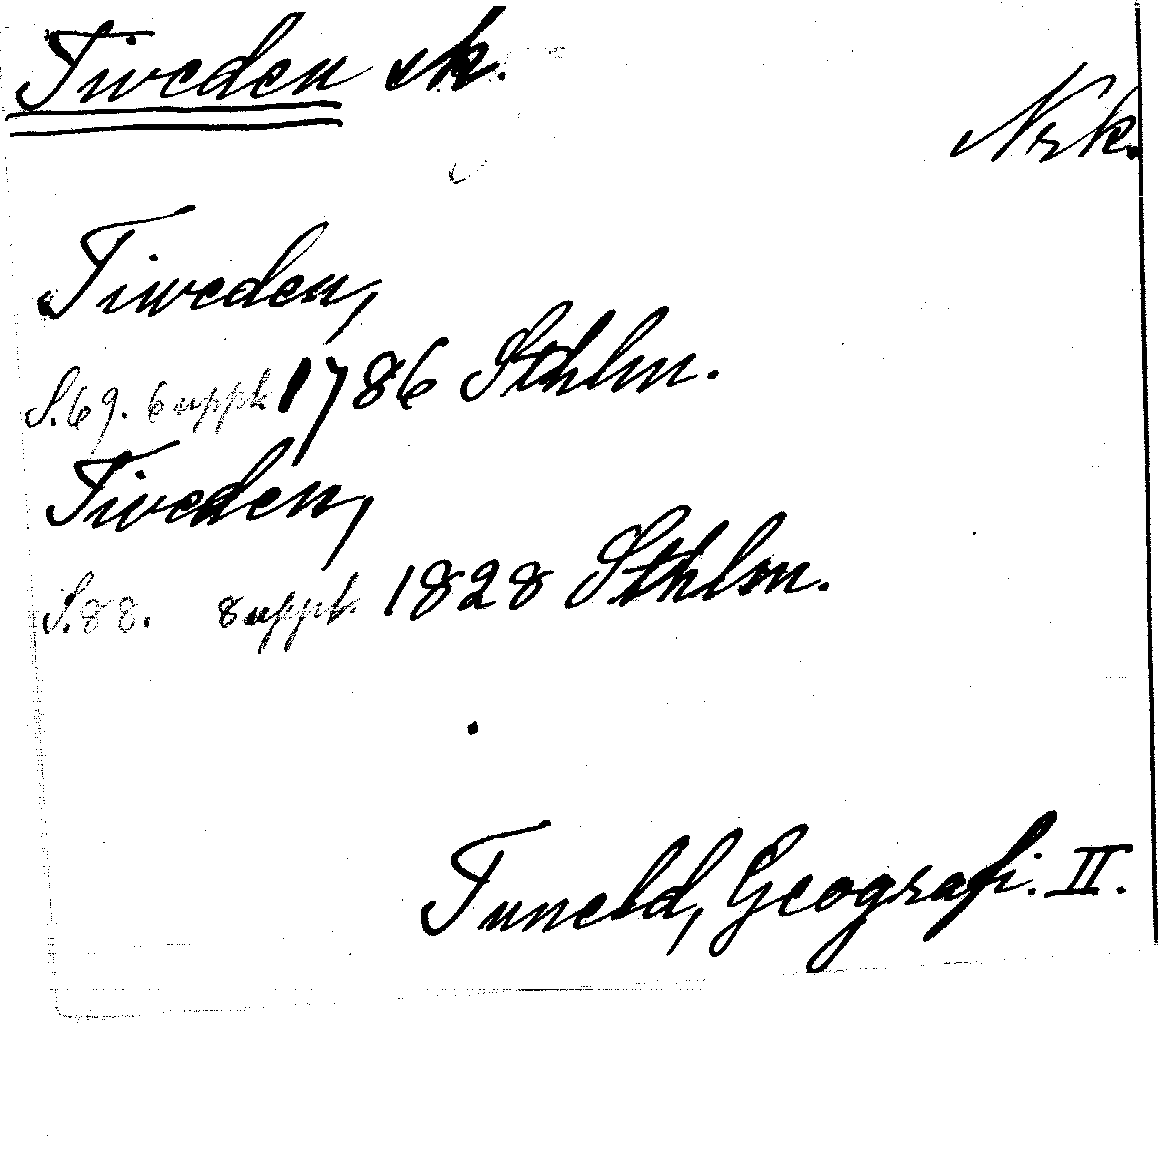 Tiweden sk.
Nrk.
Tiweden,
S. 69. 6 uppl. 1786 Sthlm.
Tiweden,
S. 88. 8 uppl. 1828 Sthlm.
Tuneld, Geografi. II.